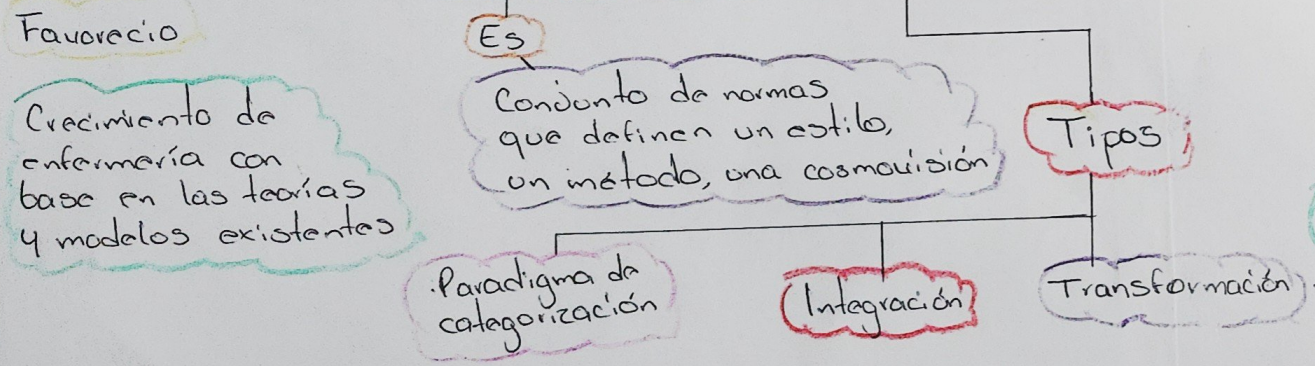 Favorecio
Crecimiento de
enfermería con
base en las teorías
y modelos existentes
Es
Conjunto de normas
que definen un estilo,
un método, una cosmovisión
Tipos
Paradigma de
categorización
Integración
Transformación